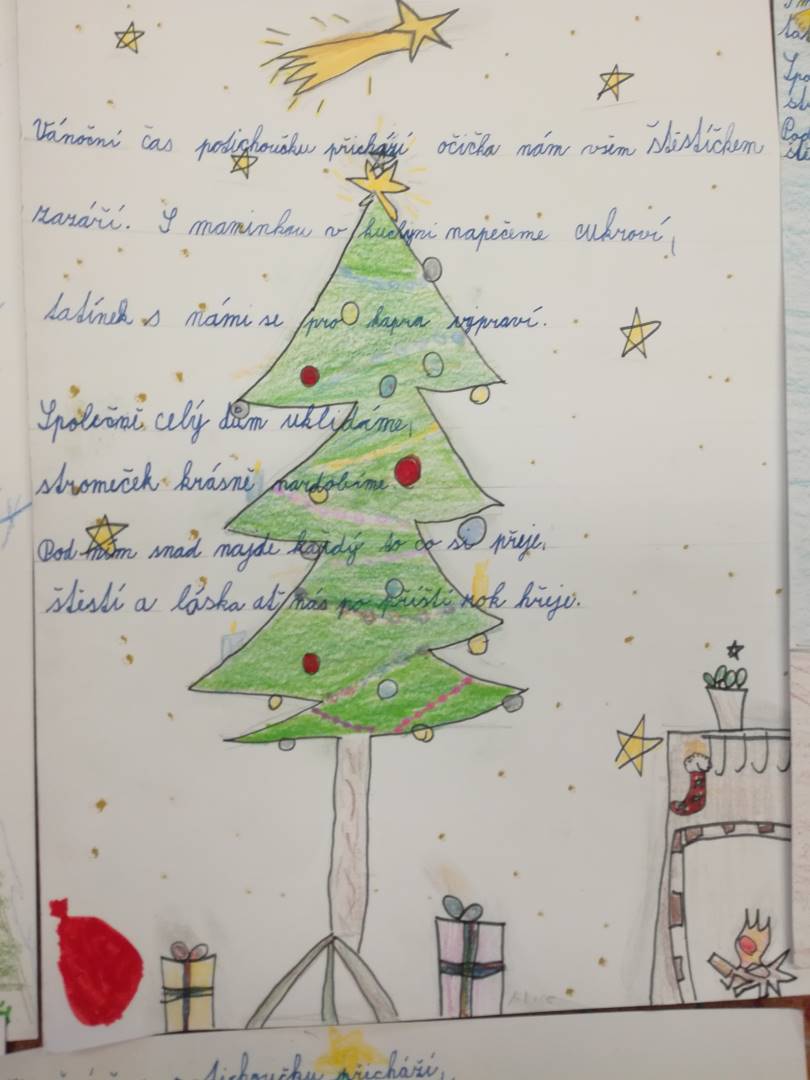 Vánoční čas potichoučku přichází očička nám všem štěstíčkem
zazáří. S maminkou v kuchyni napečeme cukroví,
tatínek s námi se pro kapra vypraví.
Společně celý dům uklidáme,
stromeček krásně nazdobíme.
Pod ním snad najde každý to co si přeje,
štěstí a láska ať nás po příští rok hřeje.
tichoučku přichází,